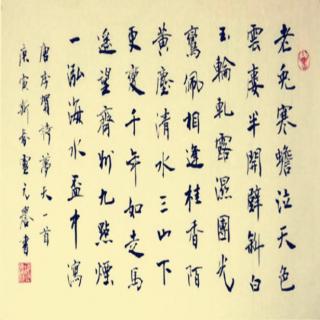 老兔寒蟾泣天色
雲樓半開壁斜白
玉輪軋露濕團光
鸞佩相逢桂香陌
黃塵清水三山下
更變千年如走馬
遙望齊州九點煙
一泓海水盃中瀉
唐李賀詩夢天一首
庚寅新春元書